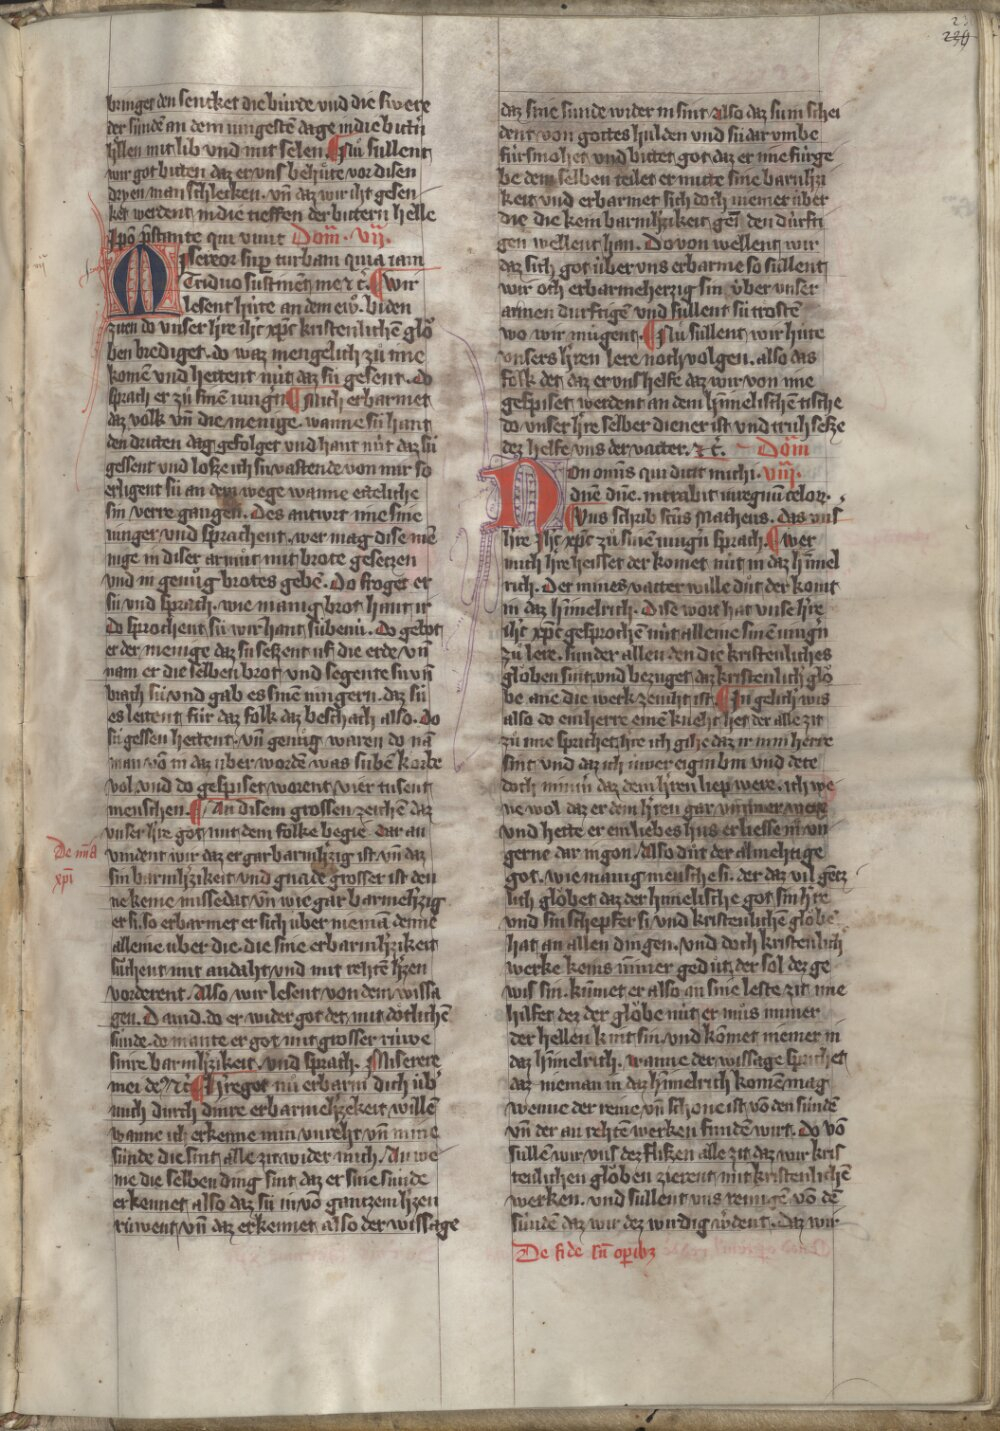 23
229
bringet den sencket die búrde vnd die swere
der súnden an dem iungestē dage in die bittˀn
hˀllen mit lib vnd mit selen. Nu súllent
wir got bitten daz er vns behuͤte vor disen
drẏen man schlecken. vn̄ daz wir iht gesen
ket werdent in die tieffen der bittern helle
xp̄o p̄stante qui viuit Dom̄. vij.
Misereor sup̲ turbam quia iam
Triduo sustinēt me ⁊ c̄. Wir
lesent húte an dem ew̄. bi den
ziten do vnser hˀre ih̄c xp̄c kristenlichē glȯ
ben brediget. do waz mengelich zuͦ ime
komē vnd hettent nút daz sú gesent. do
sprach er zuͦ sinē iungˀn Mich erbarmet
daz volk vn̄ die menige. wanne sú hant
den dritten dag gefolget vnd hant nút daz sú
gessent vnd losze ich sú vastende von mir so
erligent sú an dem wege wanne etteliche
sin verre gangen. Des antwrt ime sine
iunger vnd sprachent. wer mag dise me
nige in diser armuͦt mit brote gesetzen
vnd in genuͦg brotes gebē. Do froget er
sú vnd sprach. wie manig brot hant ir
do sprochent sú wir hant súbenú. do gebot
er der menige daz sú seszent vf die erde vn̄
nam er die selben brot vnd segente sú vn̄
brach sú vnd gab es sinē iungern. daz sú
es leitent fúr daz folk daz beschach also. do
sú gessen hettent. vn̄ genuͦg waren do nā
man vō in daz vber wordē was súben kórbe
vol vnd do gespiset worent vier tusent
menschen. An disem grossen zeichē daz
vnser hˀre got mit dem folke begie dar an
vindent wir daz er gar barmhˀzig ist vn̄ daz
sin barmhˀzikeit vnd gnade grosser ist den
ne keine missedat vn̄ wie gar barmehˀzig
er si. so erbarmet er sich vber niemā denne
alleine vber die. die sine erbarmhˀzikeit
suͦchent mit andaht vnd mit rehtē hˀzen
vorderent. Also wir lesent von dem wissa
gen. Dauid. do er wider got det mit dótlichē
súnde. do mante er got mit grosser rúwe
sinre barmhˀzikeit. vnd sprach. Miserere
mei de⁹ ⁊ c̄ Hˀre got nu erbarm dich úbˀ
mich durch dinre erbarmehˀzekeit willē
wanne ich erkenne min vnreht vn̄ mine
súnde die sint alle zit wider mich. An we
me die selben ding sint daz er sine súnde
erkennet also daz sú in vō gantzem hˀzen
rúwent vn̄ daz erkennet also der wissage
De mīa
xp̄i
daz sine súnde wider in sint also daz sú in schei
dent von gottes hulden vnd sú dar vmbe
fúrsmohet vnd bittet got daz er ime fúrge
be dem selben teilet er mitte sine barmhˀzi
keit vnd erbarmet sich doch niemer úber
die die kein barmhˀzikeit gein den dúrfti
gen wellent han. Do von wellent wir
daz sich got úber vns erbarme so súllent
wir och erbarmeherzig sin. vber vnser
armen durftigen vnd súllent sú trostē
wo wir múgent. Nu súllent wir húte
vnsers hˀren lere noch volgen. also das
folk det daz er vns helfe daz wir von ime
gespiset werdent an dem hīmelischē tische
do vnser hˀre selber diener ist vnd truhsesze
dez helfe vns der vatter. ⁊ c̄. Dom̄
Non omīs qui dicit michi. viij.
dn̄e dn̄e. intrabit in regnū celor̲.
Vns schrib scūs Matheus. das vns
hˀre ih̄c xp̄c zuͦ sinē iungˀn sprach. Wer
mich hˀre heisset der komet nút in daz hīmel
rich. Der mines vatter wille duͦt der komt
in daz hīmelrich. Dise wort hat vnse hˀre
ih̄c xp̄c gesprochē nút alleine sinē iungˀn
zuͦ lere. sunder allen den die kristenliches
glȯben sint. vnd bezuget daz kristenlich glȯ
be ane die werk zenihte ist. Zu gelich wis
also do ein herre einē kneht het der alle zit
zuͦ ime sprichet. hˀre ich gihe daz ir min herre
sint vnd daz ich úwer eigin bin vnd dete
doch nimˀ daz dem hˀren liep were. ich we
ne wol daz er dem hˀren gar vnmer were
vnd hette er ein liebes hus er liesse in vn
gerne dar in gon. Also duͦt der almehtige
got. wie manig mensche si. der daz vil gētz
lich glȯbet daz der himelische got sin hˀre
vnd sin schepfer si vnd kristenlichē glȯbē
hat an allen dingen. vnd doch kristenlich
werke keins nīmer geduͦt der sol dez ge
wis sin. kūmet er also an sine leste zit ime
hilfet dez der glȯbe nút er muͦs iemer
der hellen kint sin. vnd kōmet niemer in
daz hīmelrich. wanne der wissage sprichet
daz nieman in daz hīmelrich komē mag
wenne der reine vn̄ schone ist vō den súndē
vn̄ der an rehtē werken fundē wirt. do vō
súllē wir vns dez flisen alle zit daz wir kris
tenlichen glȯben zierent mit kristenlichē
werken. vnd súllent vns reinigē vō dē
súndē daz wir dez wirdig wˀdent. daz wir
De fide sn̄ op̲ib⁊